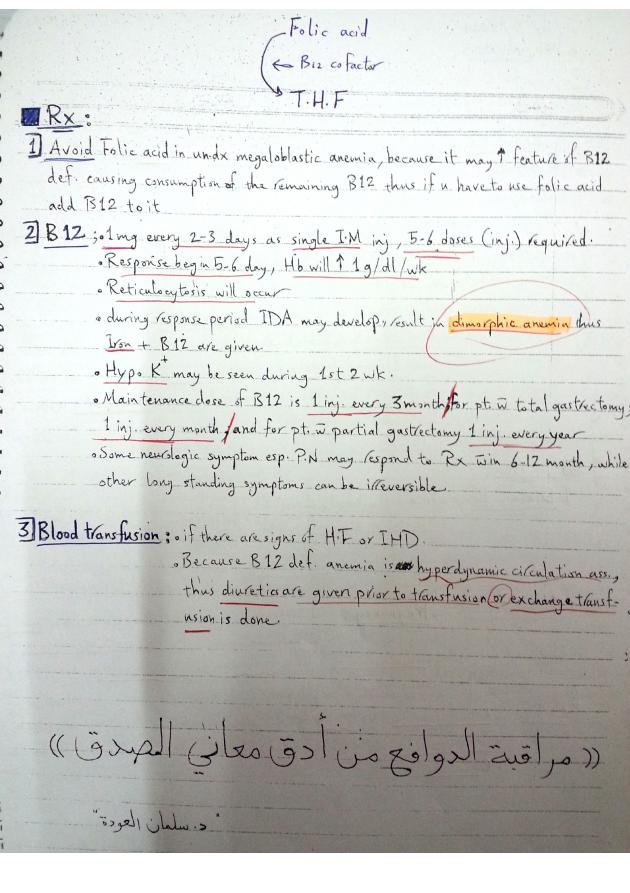 Folic acid
← B12 cofactor
T.H.F
Rx:
1] Avoid Folic acid in undx megaloblastic anemia, because it may ↑ feature of B12
def. causing consumption of the remaining B12 thus if u have to use folic acid
add B12 to it
2] B12 ; • 1mg every 2-3 days as single I.M inj, 5-6 doses (inj.) required.
• Response begin 5-6 day, Hb will ↑ 1g/dl/wk
• Reticulocytosis will occur
• during response period IDA may develop, result in dimorphic anemia thus
Iron + B12 are given.
• Hypo K⁺ may be seen during 1st 2wk.
• Maintenance dose of B12 is 1 inj. every 3month/for pt. w̄ total gastrectomy;
1 inj. every month / and for pt. w̄ partial gastrectomy 1 inj. every year
• Some neurologic symptom esp. P.N may respond to Rx w̄in 6-12 month, while
other long standing symptoms can be irreversible.
3] Blood transfusion ; • if there are signs of H.F or IHD.
• Because B12 def. anemia is hyperdynamic circulation ass.,
thus diuretics are given prior to transfusion or exchange transf-
usion is done.
(( مراقبة الدوافع من أدق معاني الصدق ))
"د. سلمان العودة"